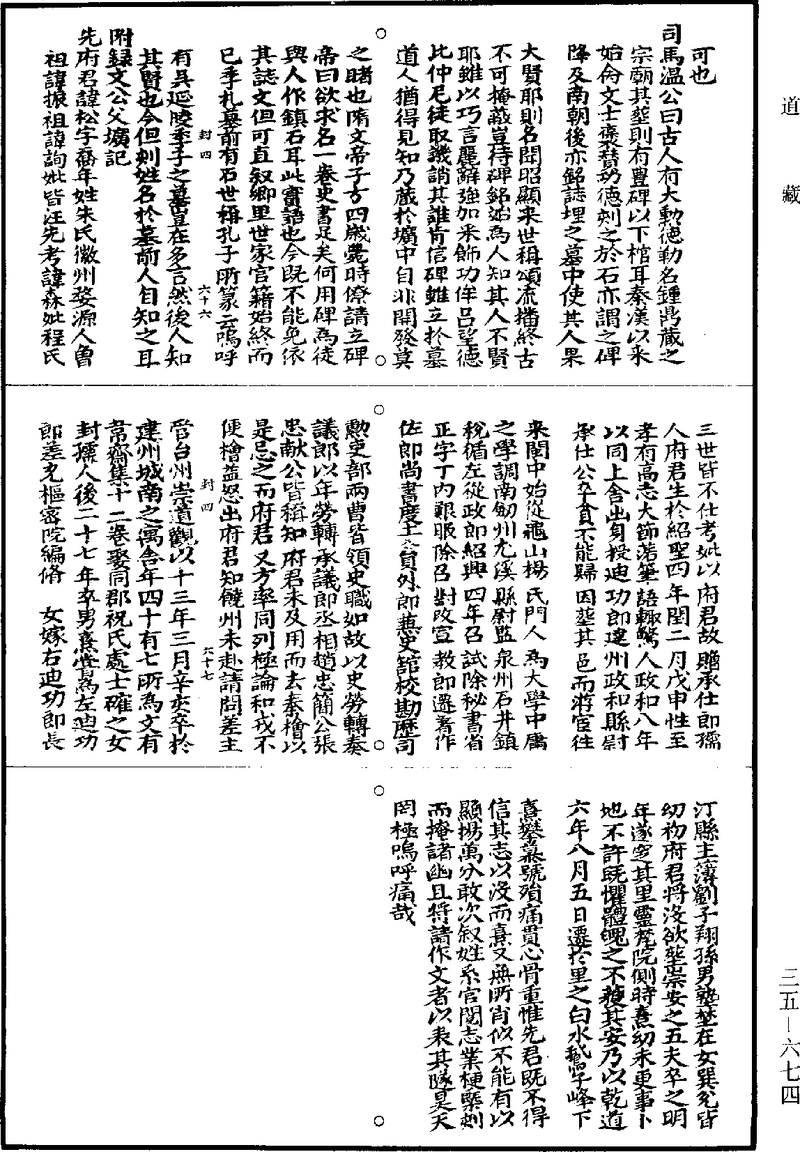 道藏
可也
司馬溫公曰古人有大勳德勒名鍾鼎藏之
宗朝其塟則有豊碑以下棺耳秦漢以来
始命文士褒賛功德刻之於石亦謂之碑
降及南朝後亦銘誌埋之墓中使其人果
大賢耶則名聞昭顯来世稱頌流播終古
不可掩蔽豈待碑銘始為人知其人不賢
耶雖以巧言麗辭強加采飾功侔吕望德
比仲尼徒取譏誚其誰肯信碑雖立扵墓
道人猶得見知乃蔵扵壙中自非開發莫
之睹也隋文帝子方四歲薨時僚請立碑
帝曰欲求名一卷史書足矣何用碑為徒
與人作鎮石耳此實語也今既不能免依
其誌文但可直叙郷里世家官籍始終而
已季札墓前有石世稱孔子所篆云嗚呼
封四 六十六
有吴延陵季子之墓豈在多言然後人知
其賢也今但刻姓名扵墓前人自知之耳
附録文公父壙記
先府君諱松字喬年姓朱氏徽州婺源人曽
祖諱振祖諱詢妣皆汪先考諱森妣程氏
三世皆不仕考妣以府君故贈承仕郎孺
人府君生於紹聖四年閏二月戊申性至
孝有高志大節落筆語輒驚人政和八年
以同上舍出身授迪功郎建州政和縣尉
承仕公卒貧不能歸因塟其邑而游宦往
来閩中始從龜山楊氏門人為大學中庸
之學調南劒州尤溪縣尉監泉州石井鎮
稅循左從政郎紹興四年召試除秘書省
正字丁内艱服除召對改宣教郎遷著作
佐郎尚書度支員外郎兼史舘校勘歷司
勲吏部兩曹皆領史職如故以史勞轉奏
議郎以年勞轉承議郎丞相趙忠簡公張
忠献公皆稱知府君未及用而去秦檜以
是忌之而府君又方率同列極論和戎不
便檜益怒出府君知饒州未赴請間差主
封四 六十七
管台州崇道觀以十三年三月辛亥卒於
建州城南之寓舎年四十有七所為文有
韋齋集十二卷娶同郡祝氏處士確之女
封孺人後二十七年卒男熹嘗為左迪功
郎差充樞宻院編脩 女嫁右迪功郎長
汀縣主簿劉子翔孫男塾埜在女巽兊皆
幼初府君将沒欲塟崇安之五夫卒之明
年遂窆其里靈梵院側時熹幼未更事卜
地不許既懼體魄之不獲其安乃以乾道
六年八月五日遷扵里之白水鵝子峰下
熹攀慕號殞痛貫心骨重惟先君既不得
信其志以沒而熹又無所肖似不能有以
顯揚萬分敢次叙姓系官閥志業梗槩刻
而掩諸幽且将請作文者以表其隧昊天
罔極嗚呼痛哉
三五—六七四